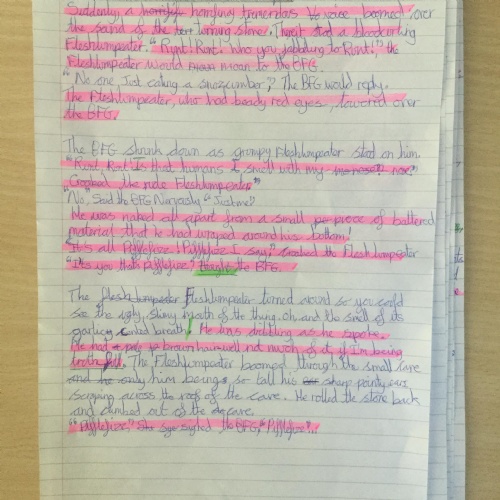 Suddenly a horrifis horrifing tremendous voice boomed over
the sound of the turning stone. There stod a bloodcurling
Fleshlumpeater. "Runt! Runt! Who you jabbaling to Runt!" the
Fleshlumpeater would moan to the BFG.
"No one Just eating a snozcumber," The BFG would reply.
The Fleshlumpeater, who had beady red eyes, towered over
the BFG.
The BFG shrunk down as grumpy Fleshlumpeater stod on him.
"Runt, Runt Is that humans I smell with my nose?"
"Croaked the rude Fleshlumpeater"
"No," Said the BFG Nervously "Just me!"
He was naked all apart from a small piece of battered
material that he had wraped around his bottom!
"It's all Pifflefizz! Pifflefizz I say," croaked the Flesh lumpeater
"It's you thats pifflefizz?" the BFG.
The flesh lumpeater Fleshlumpeater turned around so you could
see the ugly, shiny mouth of the thing oh and the smell of its
garlicy breath! He was dribbling as he spoke.
He had brown hair well not much of it if I'm being
truthfull. The Fleshlumpeater boomed through the small cave
and only him being so tall his sharp pointy ears
scraping across the roof of the cave. He rolled the stone back
and climbed out of the cave.
"Pifflefizz," sighed the BFG, "Pifflefizz"...